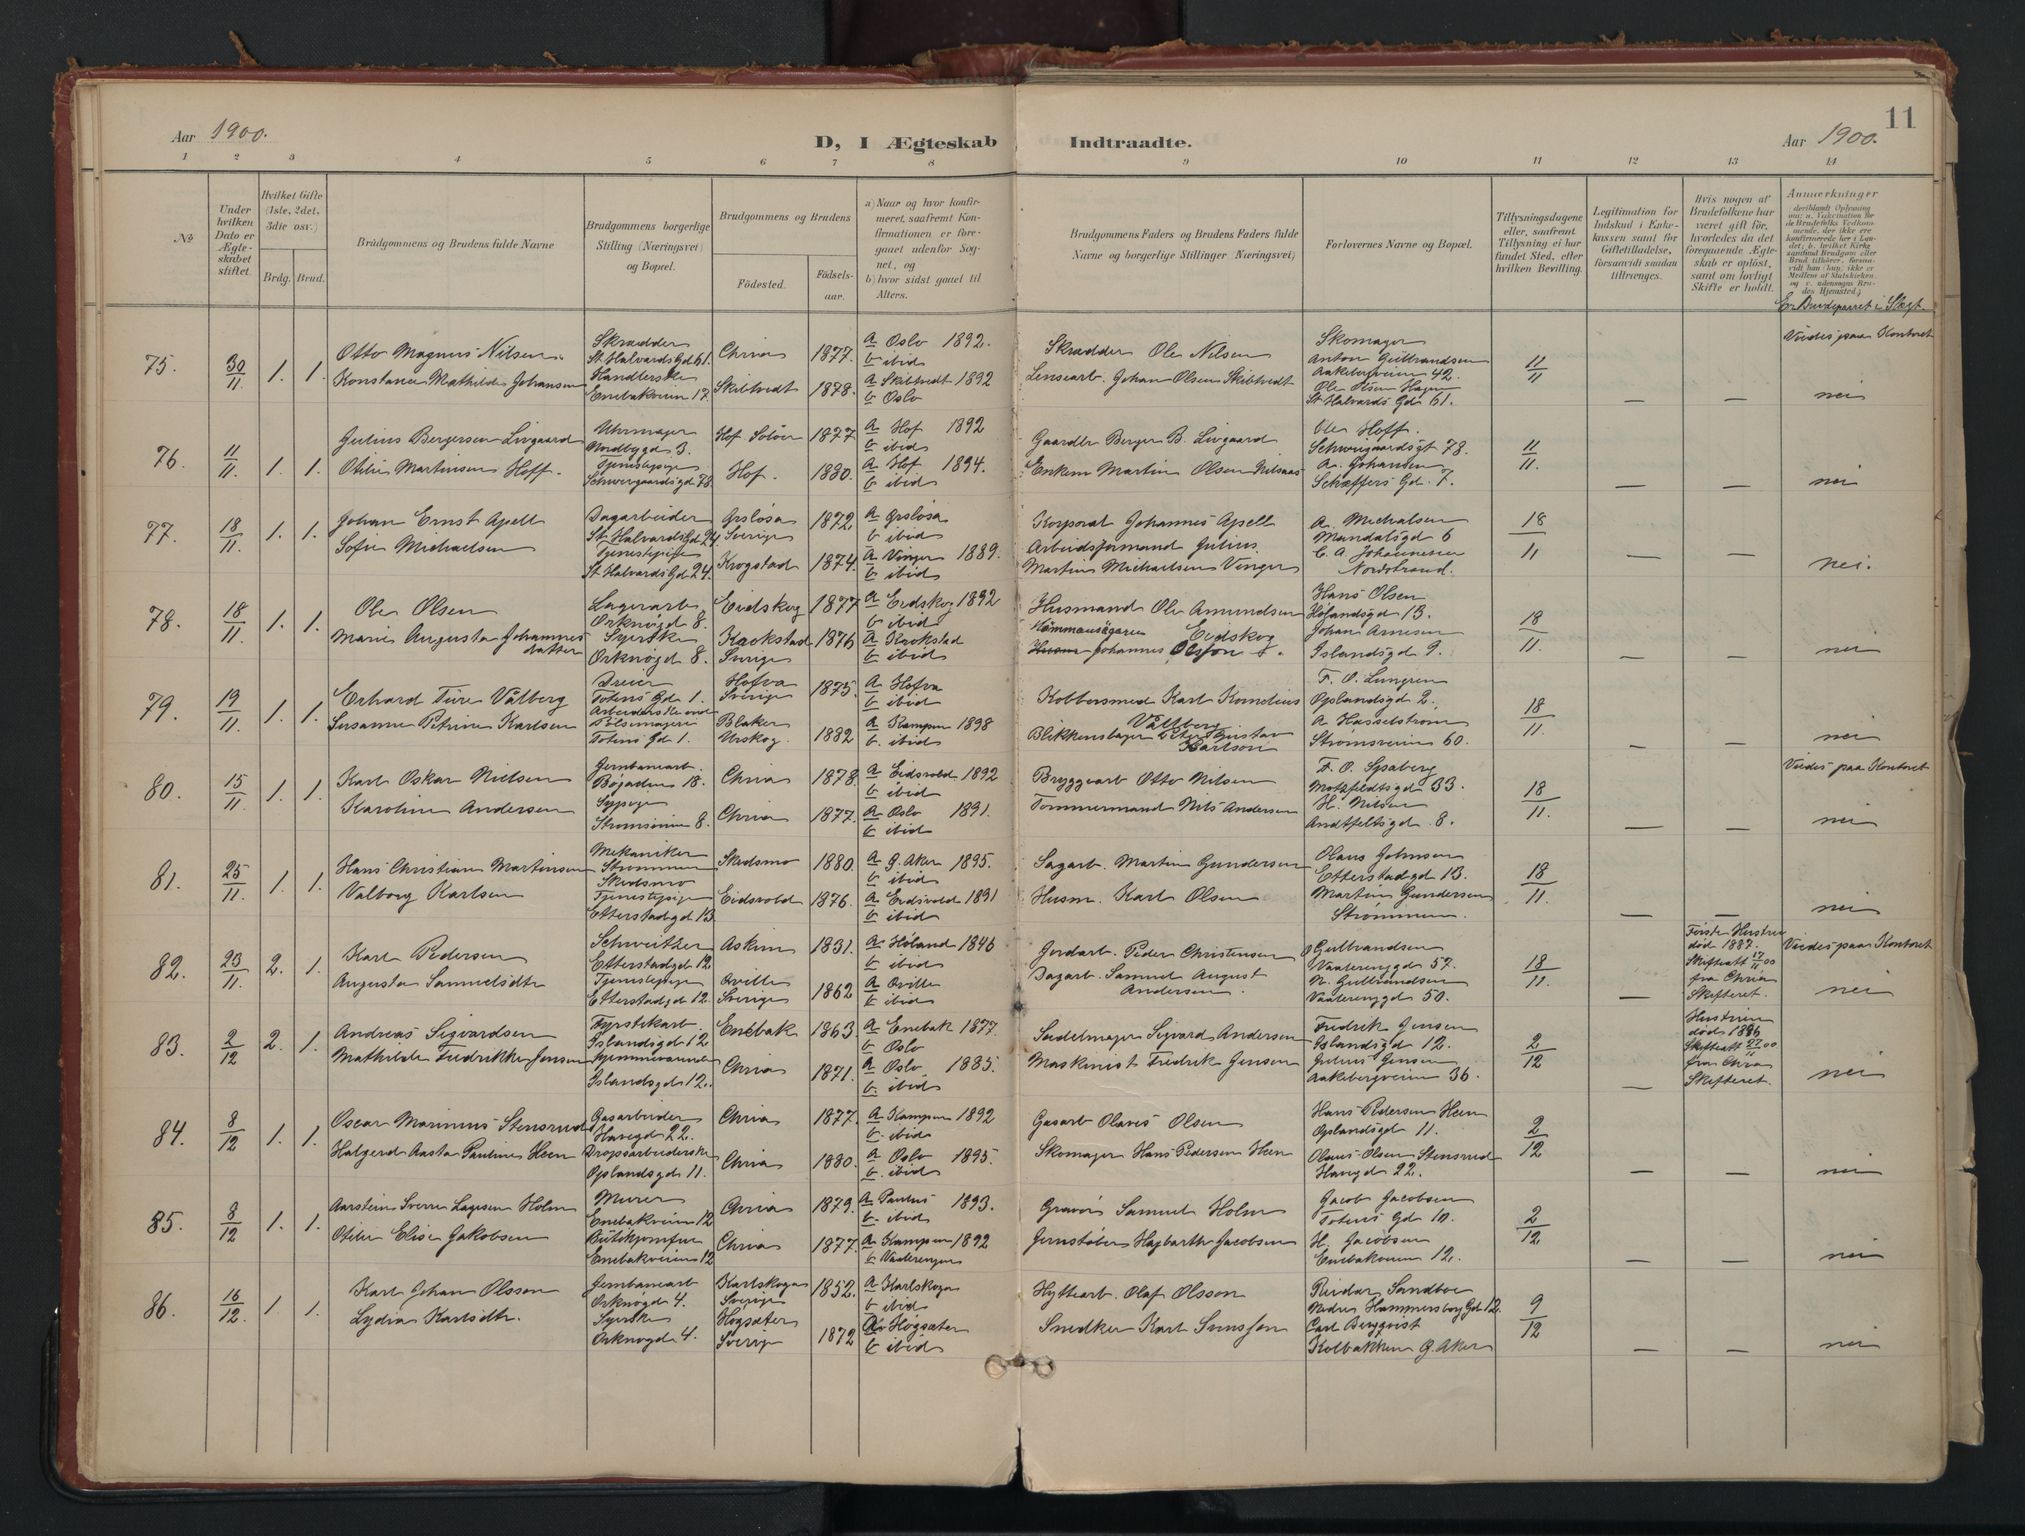 11
Aar 1900.
D, I Ægteskab Indtraadte.
Aar 1900.
1 2 3 4 5 6 7 8 9 10 11 12 13 14
№
Under hvilken Dato er Ægteskabet stiftet.
Hvilket Gifte (1ste, 2det, 3die osv.)
Brdg. Brud.
Brudgommens og Brudens fulde Navne
Brudgommens borgerlige Stilling (Næringsvei) og Bopæl.
Brudgommens og Brudens
Födested.
Födselsaar.
a) Naar og hvor konfirmeret, saafremt Konfirmationen er foregaaet udenfor Sognet, og
b) hvor sidst gaaet til Alters.
Brudgommens Faders og Brudens Faders fulde Navne og borgerlige Stillinger Næringsvei)
Forlovernes Navne og Bopæl.
Tillysningsdagene eller, saafremt Tillysning ei har fundet Sted, efter hvilken Bevilling.
Legitimation for Indskud i Enkekassen samt for Giftetilladelse, forsaavidt saadan tiltrænges.
Hvis nogen af Brudefolkene har været gift för, hvorledes da det foregaaende Ægteskab er oplöst, samt om lovligt Skifte er holdt.
Anmerkninger
Er Brudeparret i Slægt.
75. 30/11 1. 1.
Otto Magnus Nilsen
Konstance Mathilde Johansen
Skrædder
St. Halvards Gd 61.
Handlerske
Enebakveien 17.
Chria 1877. a Oslo 1892.
b ibid
Skibtvedt 1878. a Skibtvedt 1892
b Oslo
Skrædder Ole Nilsen
Lensearb. Johan Olsen Skibtvedt
Skomager
Anton Gulbrandsen
Aakebergveien 42.
Ole Olsen Hagen
St Halvards Gd 61.
11/11 — —
Viedes paa Kontoret
nei
76. 11/11. 1. 1.
Julius Bergersen Livgaard
Otilie Martinsen Hoff.
Uhrmager
Nordbygd 3.
Tjenestepige
Schweigaardsgd 78.
Hof Solör 1877 a Hof 1892
b ibid
Hof. 1880. a Hof 1894.
b ibid
Gaardbr Berger B. Livgaard
Enkem Martin Olsen
Ole Hoff.
Schweigaardsgt 78.
A. Johansen
Schæffers Gd. 7.
11/11. — — nei
77. 18/11. 1. 1.
Johan Ernst Apell
Sofie Michaelsen
Dagarbeider
St. Halvards Gd 24.
Tjenestepige
St Halvards Gd 24.
Grslösa
Sverige 1872. a Grslösa
b ibid
Krogstad 1874. a Vinger 1889.
b ibid
Korporal Johannes Apell
Arbeidsformand Julius
Martin Michaelsen Vinger
A. Michalsen
Mandalsgd 6
C. A. Johannesen
Nordstrand.
18/11 — — nei.
78. 18/11. 1. 1.
Ole Olsen
Marie Augusta Johannesdatter
Lagerarb.
Orknögd 8.
Syerske
Orknögd 8.
Eidskog 1877 a Eidskog 1892
b ibid
Krokstad
Sverige 1876 a Krokstad
b ibid
Husmand Ole Amundsen
Eidskog
Hemmansägaren
Johannes Olsson
Hans Olsen
Hölandsgd 13.
Johan Arnesen
Islandsgd 9.
18/11. — — nei
79. 19/11. 1. 1.
Erhard Ture Vålberg
Susanne Petrine Karlsen
Dreier
Totens Gd. 1.
Pölsemageri
Totens Gd 1.
Hofva
Sverige 1875. a Hofva
b ibid
Blaker
Urskog. 1882 a Kampen 1898
b. ibid
Kobbersmed Karl Kornelius
Vålberg
Blikkenslager Peter Gustav
Karlson
F. O. Lungren
Oplandsgd 2.
A Hasselstrøm
Strømsveien 60.
18/11. — — nei
80. 15/11. 1. 1.
Karl Oskar Nielsen
Karoline Andersen
Jernbanearb.
Bögaden 18.
Sypige
Strømsveien 8.
Chria 1878. a Eidsvold 1892
b ibid
Chria 1877. a Oslo 1891.
b ibid
Bryggearb Otto Nilsen
Tømmermand Nils Andersen
F. O. Spaberg
Motzfeldtsgd 33.
H. Nilsen
8.
18/11. — —
Viedes paa Kontoret
nei
81. 25/11. 1. 1.
Hans Christian Martinsen
Valborg Karlsen
Mekaniker
Strømmen
Skedsmo
Tjenestepige
Etterstadgd 13
Skedsmo 1880. a G. Aker 1895.
b ibid
Eidsvold 1876. a Eidsvold 1891
b ibid
Sagarb. Martin Gundersen
Husm. Karl Olsen
Olaus Johnsen
Etterstadgd 13.
Martin Gundersen
Strømmen.
18/11. — — nei
82. 23/11. 2. 1.
Karl Pedersen
Augusta Samuelsdtr
Schweitzer
Etterstadgd 12.
Tjenestepige
Etterstadgd 12.
Askim 1831. a Höland 1846
b ibid
Ørville
Sverige 1862 a Ørville
b ibid
Jordarb. Peder Christensen
Dagarb. Samuel August
Andersen.
Gulbrandsen
Vaalerenggd 57.
N. Gulbrandsen
Vaalerenggd 50.
18/11. —
Første Hustru
död 1887.
Skifteatt 17/11 00
fra Chria
Skifteret.
Viedes paa Kontoret
nei
83. 2/12 2. 1.
Andreas Sigvardsen
Mathilde Fredrikke Jensen
Fyrstikarb.
Islandsgd 12
Hjemmeværende
Islandsgd 12.
Enebak 1863. a Enebak 1877
b Oslo
Chria 1871. a Oslo 1885.
b ibid
Sadelmager Sigvard Andersen
Maskinist Fredrik Jensen
Fredrik Jensen
Islandsgd 12.
Julius Jensen
Aakebergveien 36.
2/12 —
Hustruen
död 1896
Skifteatt 27/11 00
fra Chria
Skifteret.
nei
84. 8/12 1. 1.
Oscar Marinius Stensrud
Halgerd Aasta Pauline Heen
Gasarbeider
Havegd 22.
Dropsarbeiderske
Oplandsgd 11.
Chria 1877. a Kampen 1892
b. ibid
Chria 1880. a Oslo 1895.
b. ibid
Gasarb Olaves Olsen
Skomager Hans Pedersen Heen
Hans Pedersen Heen
Oplandsgd 11.
Olaus Olsen Stensrud
Havegd 22.
2/12 — — nei
85. 8/12 1. 1.
Aarstein Sverre Lagesen Holm
Otilie Elise Jakobsen
Murer
Enebakveien 12
Butikjomfru
Enebakveien 12
Chria 1879. a Paulus 1893.
b. ibid
Chria 1877. a Kampen 1892
b Vaalerengen
Gravör Samuel Holm
Jernstøber Hagbarth Jacobsen
Jacob Jacobsen
Totens Gd 10.
H. Jacobsen
Enebakveien 12.
2/12 — — nei
86. 16/12. 1. 1.
Karl Johan Olsson
Lydia Karlsdtr.
Jernbanearb
Orknögd 4.
Syerske
Orknögd 4.
Karlskoga
Sverige 1852. a Karlskoga
b ibid
Högsäter
Sverige 1872 a Högsäter
b ibid
Hyttearb. Olaf Olsson
Snedker Karl Svensson
Reidar Sandboe
Nedre Hammersborg Gd 12.
Carl Bergqvist
Kolbakken G. Aker
9/12 — — nei